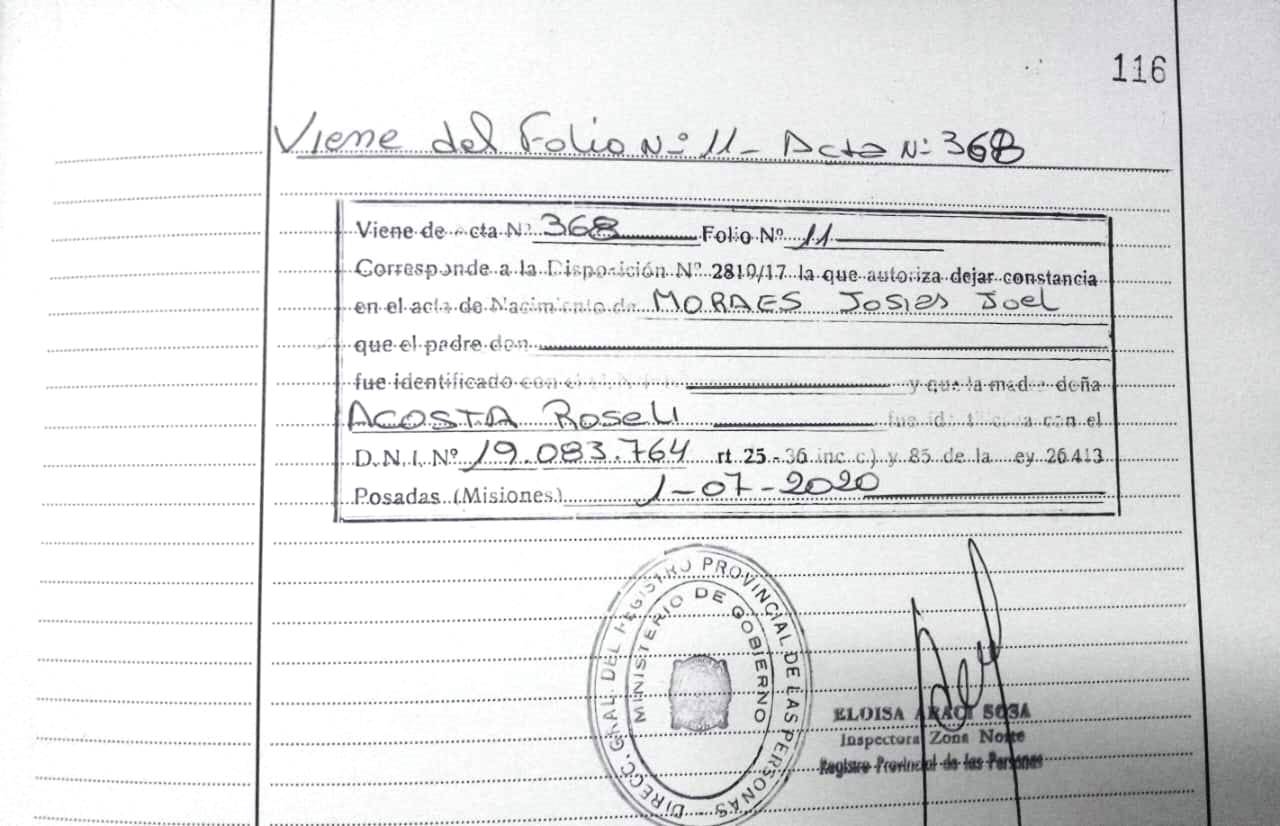 116
Viene del Folio Nº 11 - Acta Nº 368
Viene de Acta Nº 368 Folio Nº 11
Corresponde a la Disposición Nº 2810/17 la que autoriza dejar constancia
en el acta de Nacimiento de MORAES Josías Joel
que el padre don
fue identificado con el y que la madre doña
ACOSTA Roseli fue identificada con el
D.N.I. Nº 19.083.764 rt 25 - 36 inc. c) y 85 de la ey 26413
Posadas (Misiones) 1-07-2020
DIRECC. GRAL. DEL REGISTRO PROVINCIAL DE LAS PERSONAS
MINISTERIO DE GOBIERNO
ELOISA ARACI SOSA
Inspectora Zona Norte
Registro Provincial de las Personas